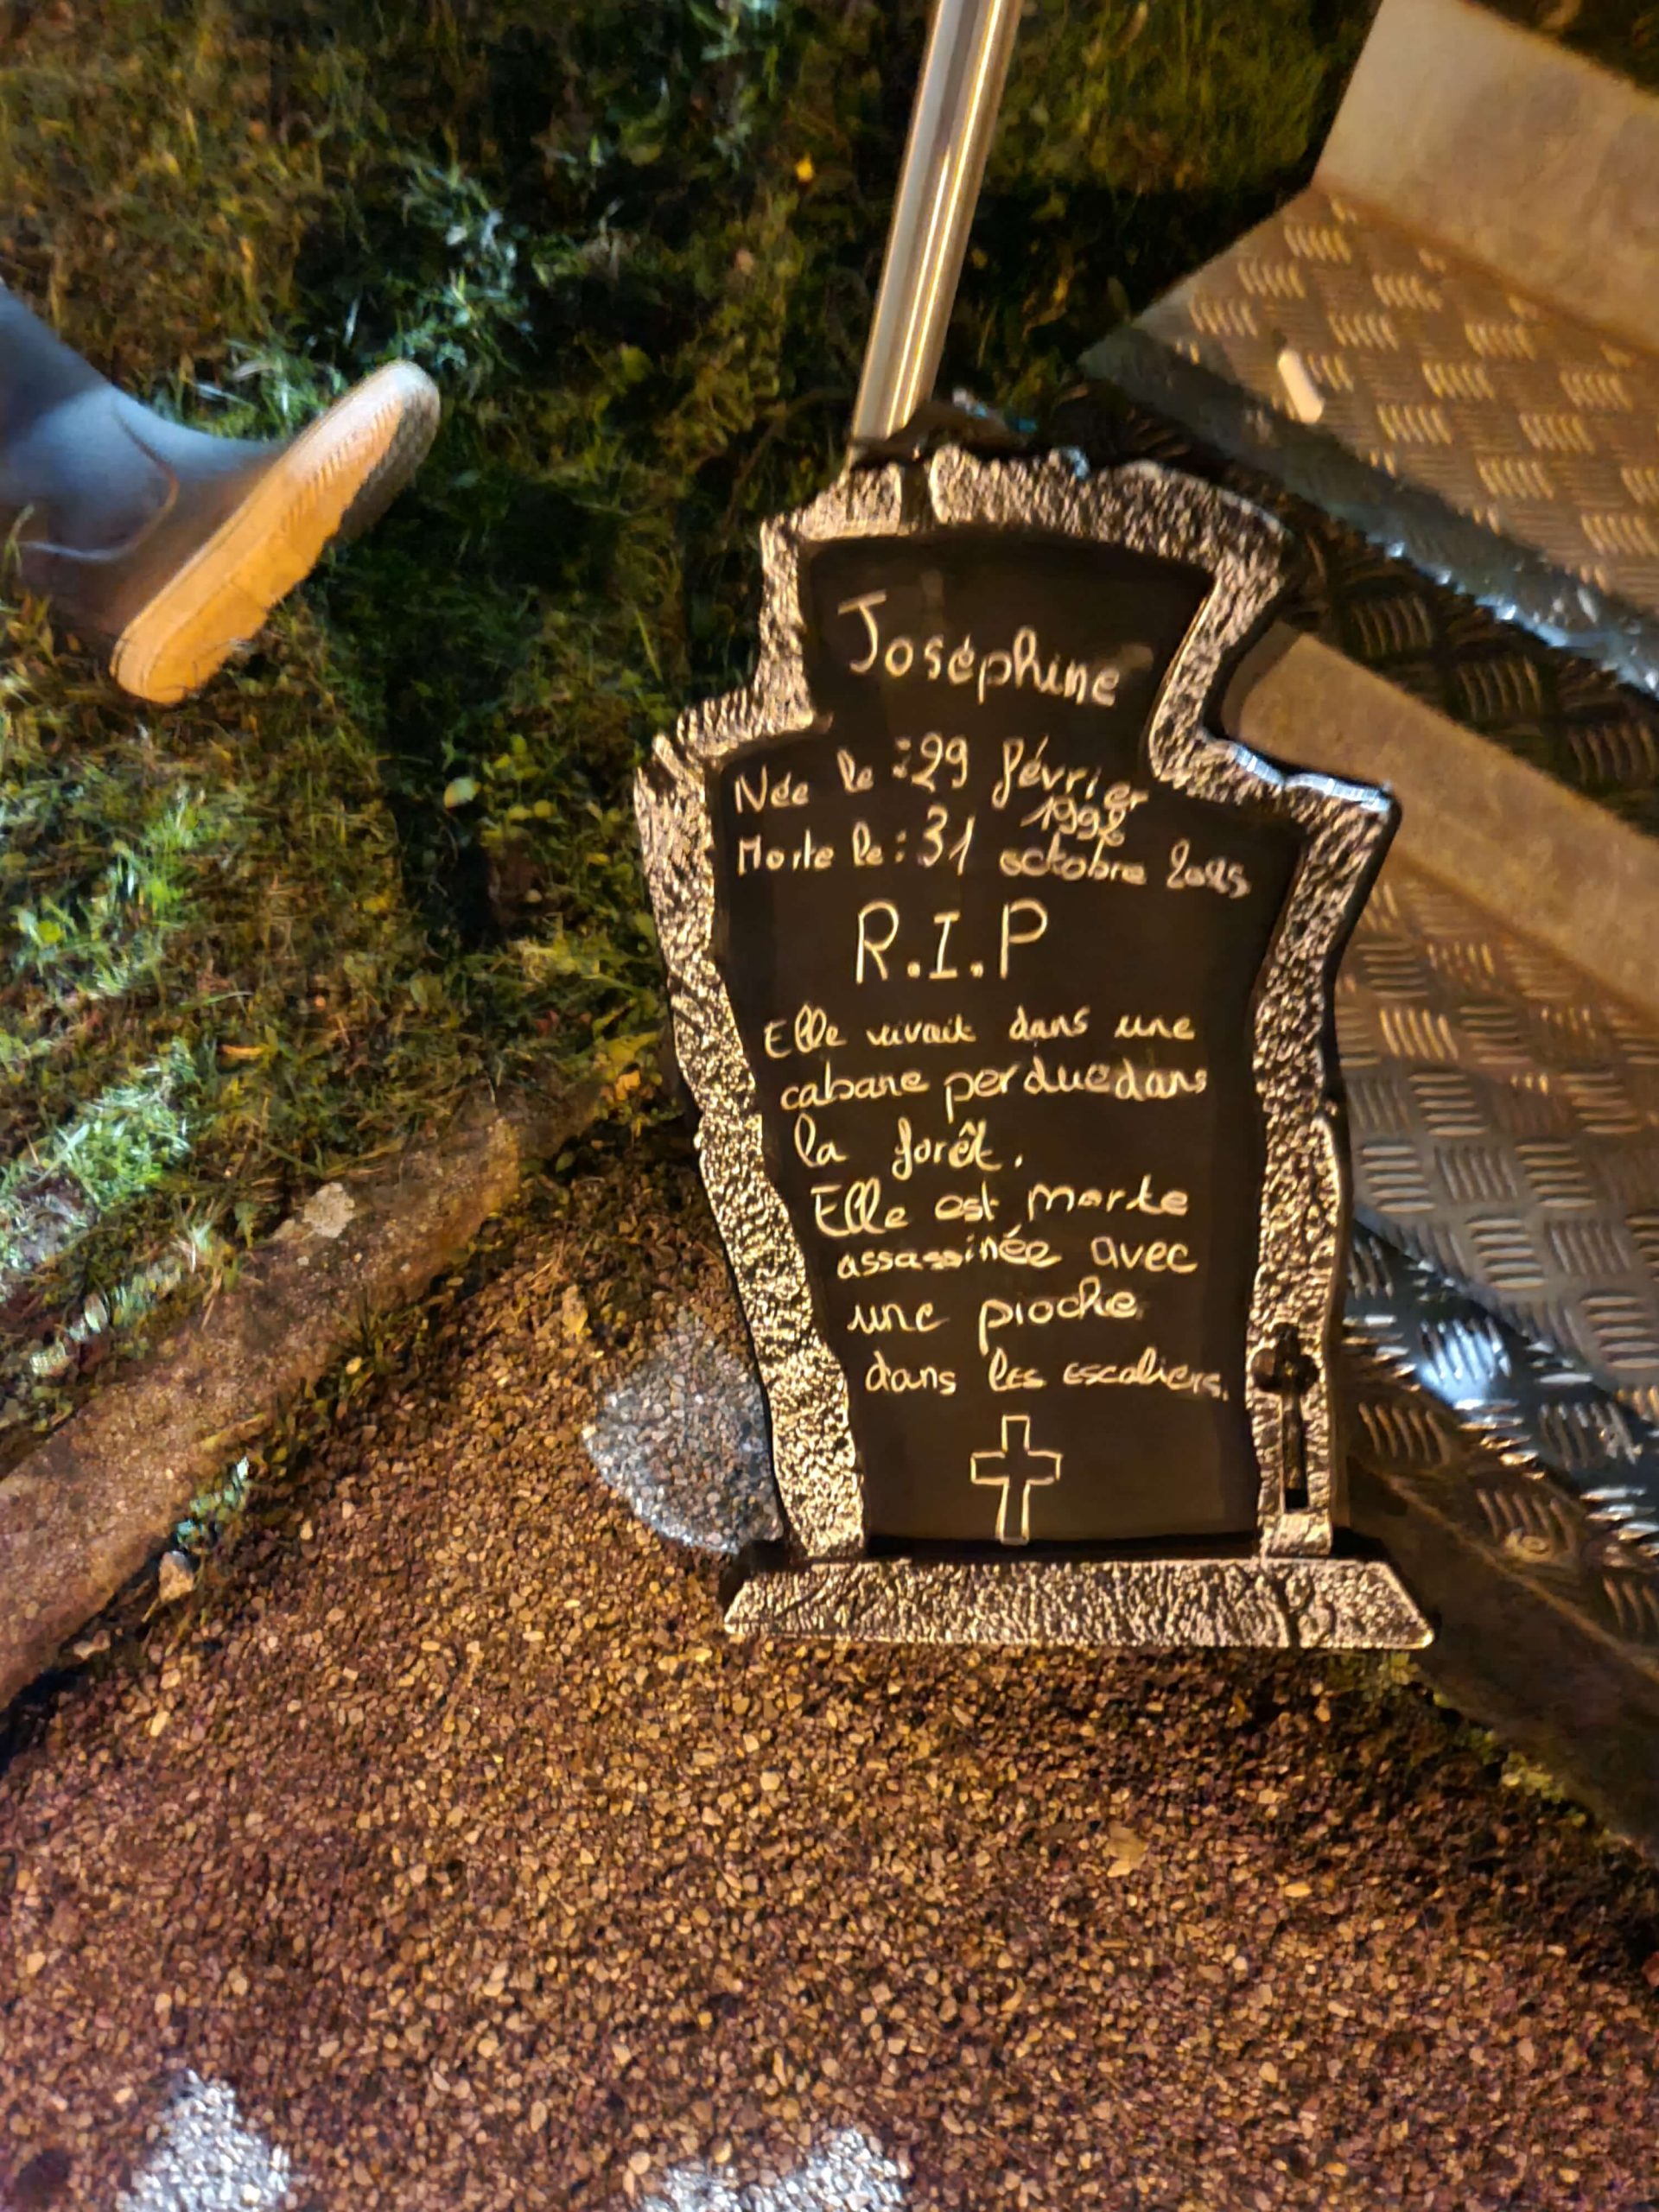 Joséphine
Née le : 29 février
1992
Morte le : 31 octobre 2025
R.I.P
Elle vivait dans une
cabane perdue dans
la forêt.
Elle est morte
assassinée avec
une pioche
dans les escaliers.